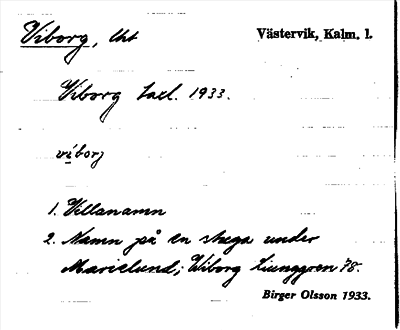 Viborg, lht
Västervik, Kalm. l.
Viborg taxl. 1933.
viborj
1. Villanamn
2. Namn på en stuga under
Marielund; Wiborg Ljunggren 78.
Birger Olsson 1933.